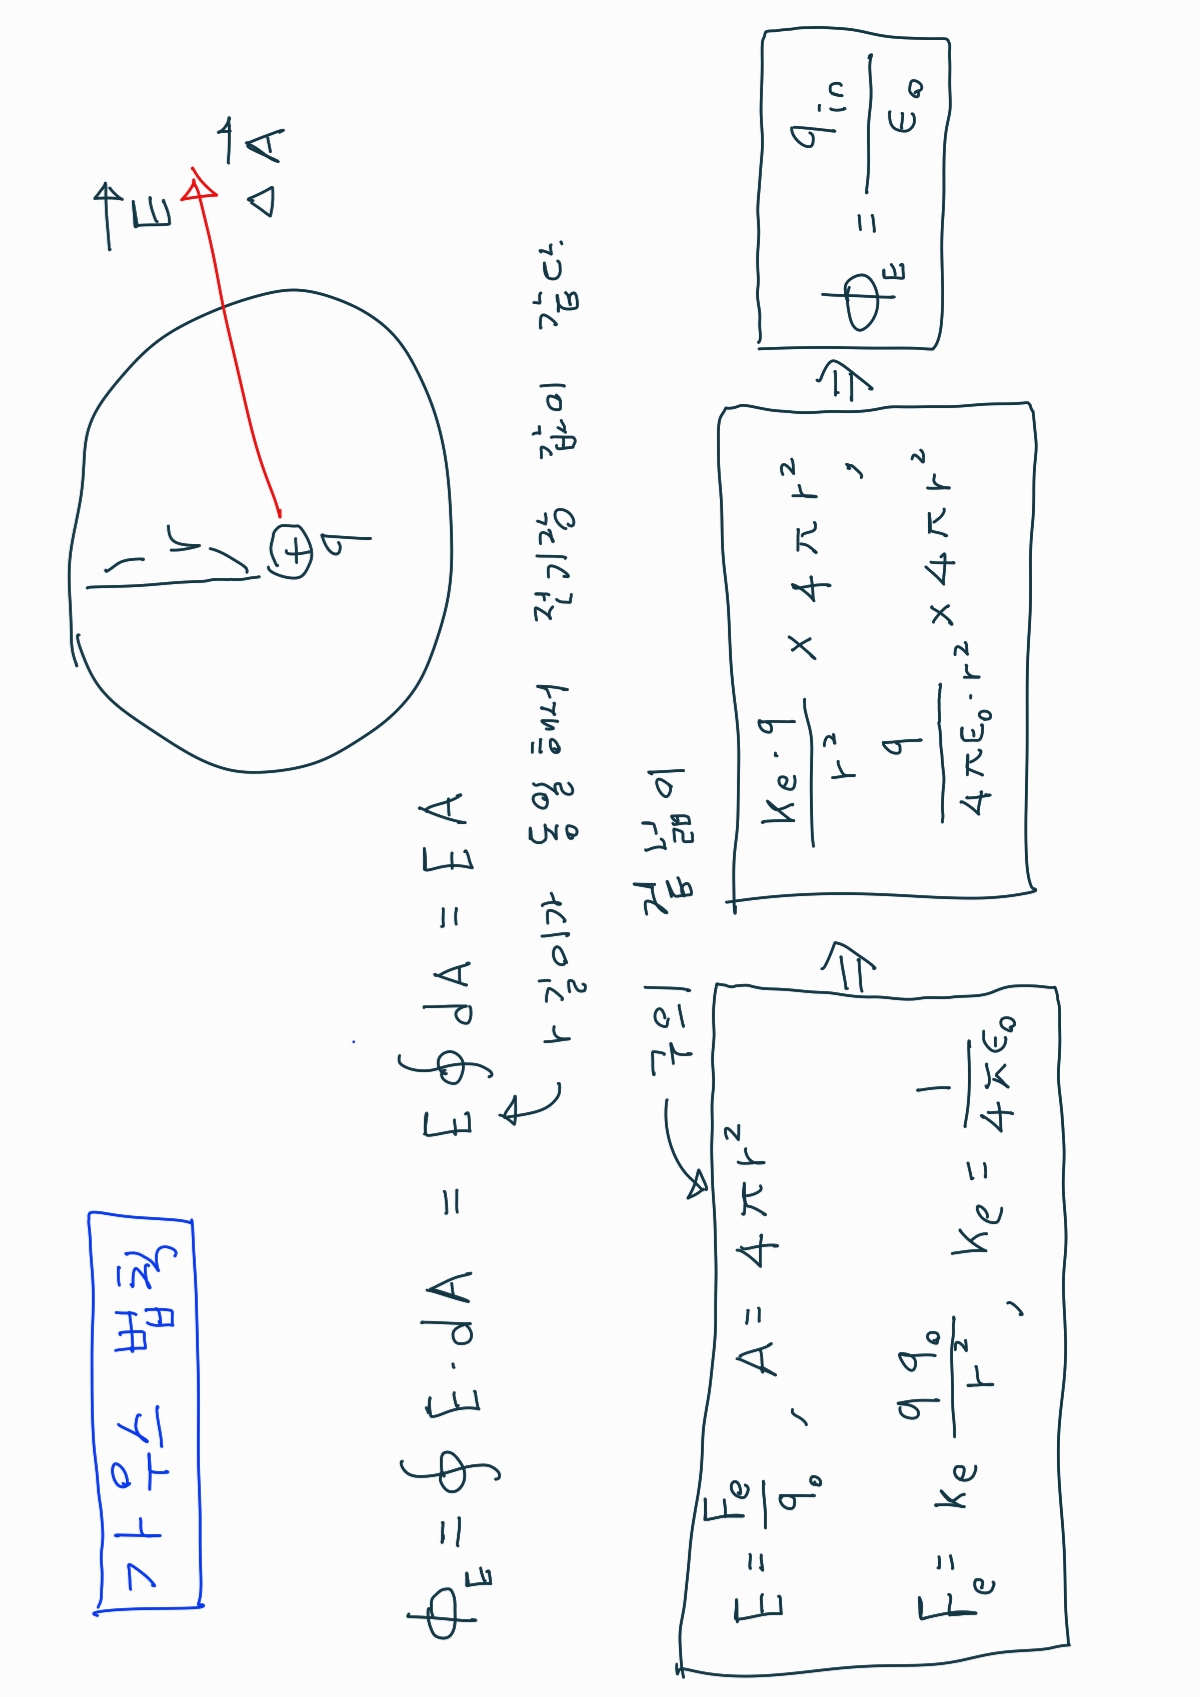 가우스 법칙
E⃗
ΔA⃗
r
+
q
Φ_E = ∮ E · dA = E ∮ dA = E A
r 값이 같음을 통해서 전기장 값이 같다.
구의 겉넓이
E = Fe/q₀ , A = 4πr²
Fe = Ke q q₀/r² , Ke = 1/4πε₀
⇒
Ke · q/r² × 4πr² ,
q/4πε₀ · r² × 4πr²
⇒
Φ_E = q_in/ε₀